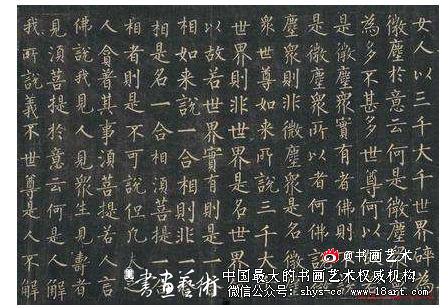 女人以三千大千世界碎為
微塵於意云何是微塵眾
為多不甚多世尊何以
是微塵眾實有者佛則
是微塵眾所以者何佛說
塵眾則非微塵眾是名微
眾世尊如來所說三千大
世界則非世界是名世界
以故若世界實有
相如來說一合相則
相是名一合相須菩提一
相者則是不可說但凡夫
人貪著其事須菩提若人言
佛說我見人見眾生見壽者
見須菩提於意云何是人解
我所說義不世尊是人不解
@书画艺术
書畫藝術
中国最大的书画艺术权威机构
微信公众号:shys-8 www.18art.com